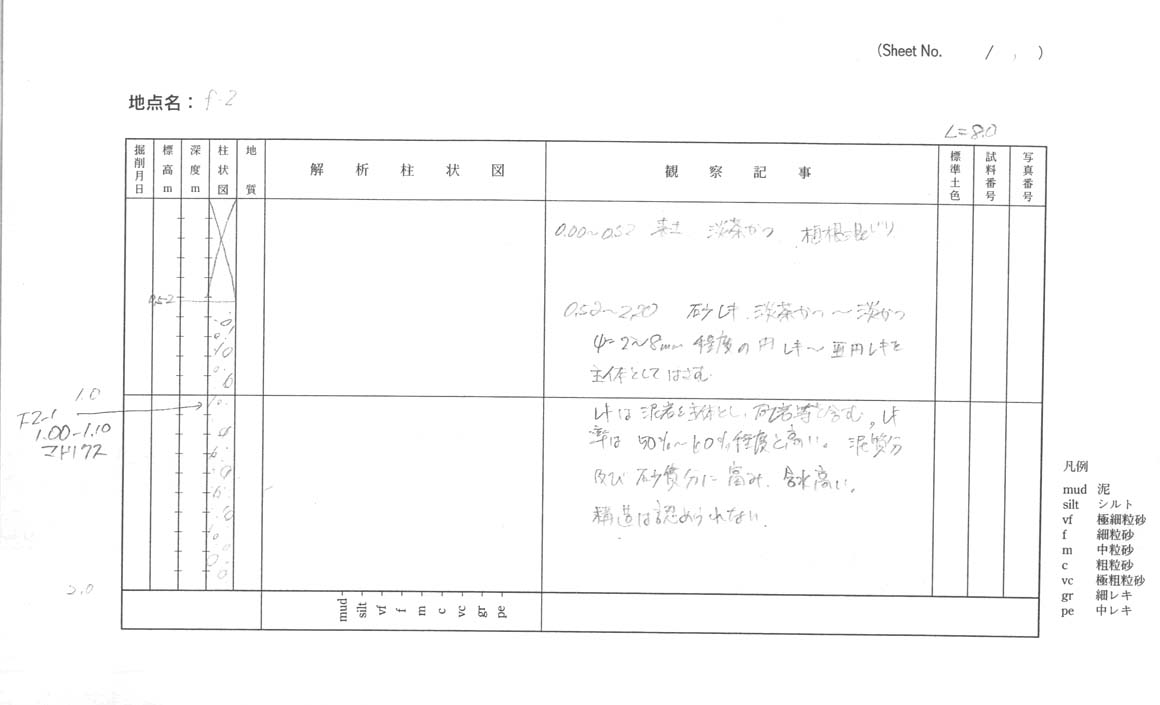 (Sheet No.　　/　　)
地点名： f-2
L=8.0
掘削月日
標高 m
深度 m
柱状図
地質
解析柱状図
観察記事
標準土色
試料番号
写真番号
0.00〜0.52 表土 淡茶かつ 植根混じり
0.52
0.52〜2.20 砂レキ、淡茶かつ〜淡かつ
φ=2〜8mm 程度の円レキ〜亜円レキを
主体としてはさむ
1.0
F2-1
1.00-1.10
レキは泥岩を主体とし、砂岩等を含む。レキ
率は 50%〜60%程度と高い。泥質分
及び砂質分に富み、含水高い。
構造は認められない。
2.0
mud silt vf f m c vc gr pe
凡例
mud 泥
silt シルト
vf 極細粒砂
f 細粒砂
m 中粒砂
c 粗粒砂
vc 極粗粒砂
gr 細レキ
pe 中レキ